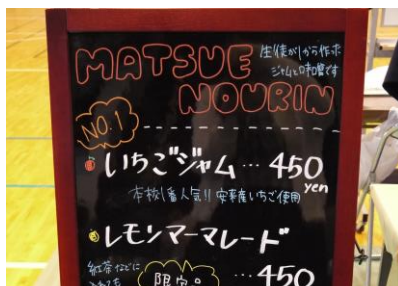 MATSUE
NOURIN
生徒が1から作った
ジャムと味噌です
NO.1
いちごジャム…450
yen
本校1番人気!! 安来産いちご使用
レモンマーマレード
紅茶などに
限定
…450